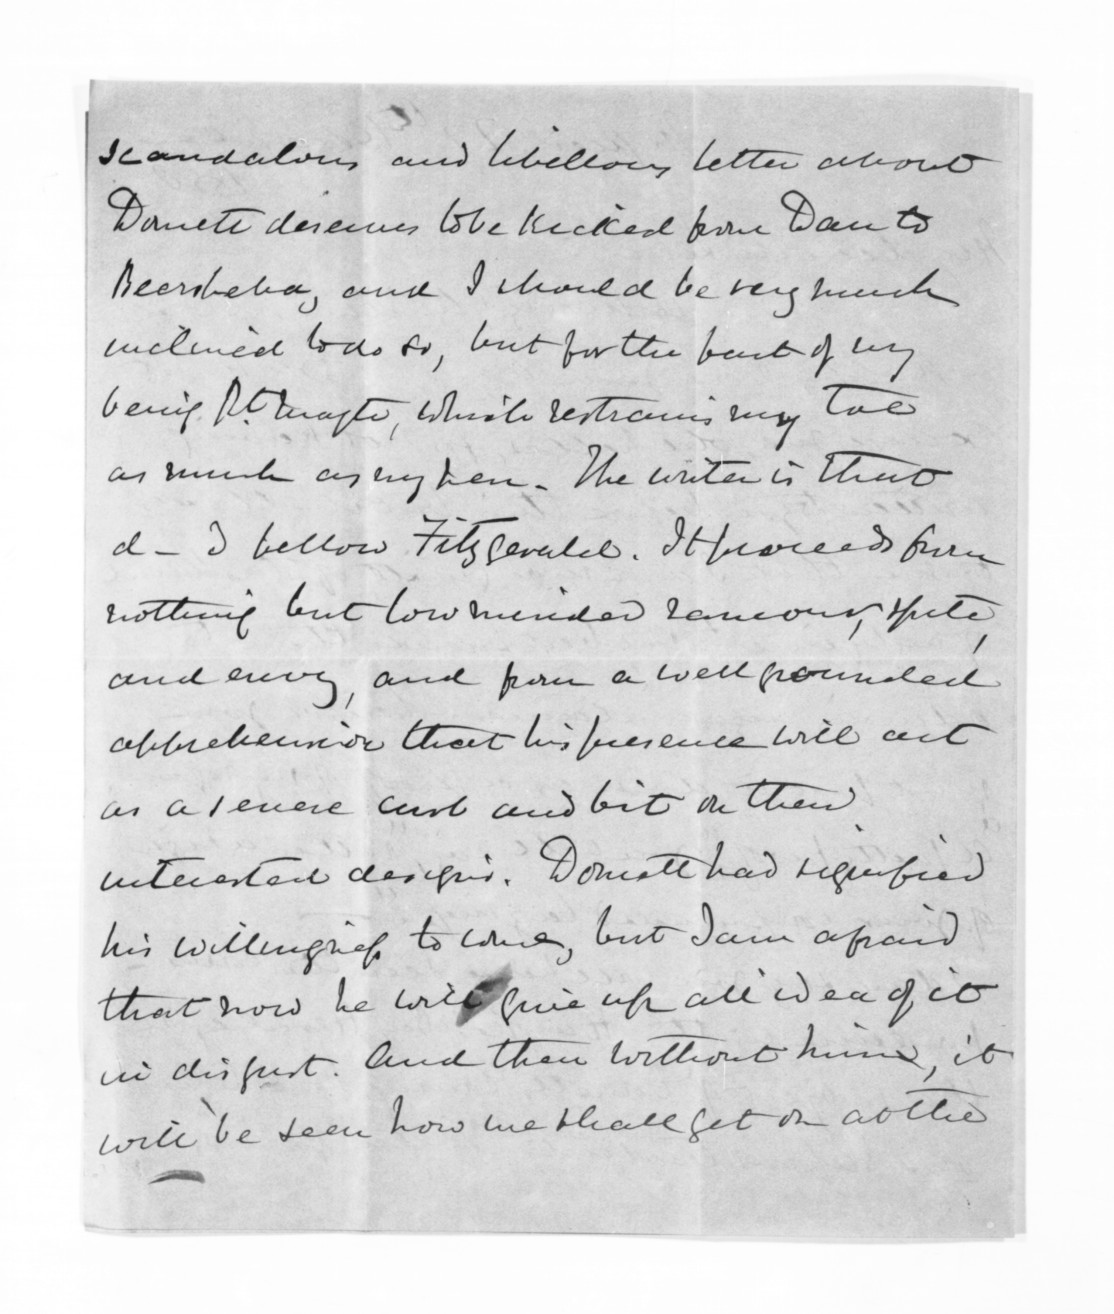 scandalous and libellous letter about
Domett deserves to be kicked from Dan to
Beersheba, and I should be very much
inclined to do so, but for the fact of my
being Rt. Magte, which restrains my toe
as much as my pen. The writer is that
d—d fellow Fitzgerald. It proceeds from
nothing but low minded rancour, spite,
and envy, and from a well grounded
apprehension that his presence will act
as a severe curb and bit on their
interested designs. Domett had signified
his willingness to come, but I am afraid
that now he will give up all idea of it
in disgust. And then without him, it
will be seen how we shall get on at the